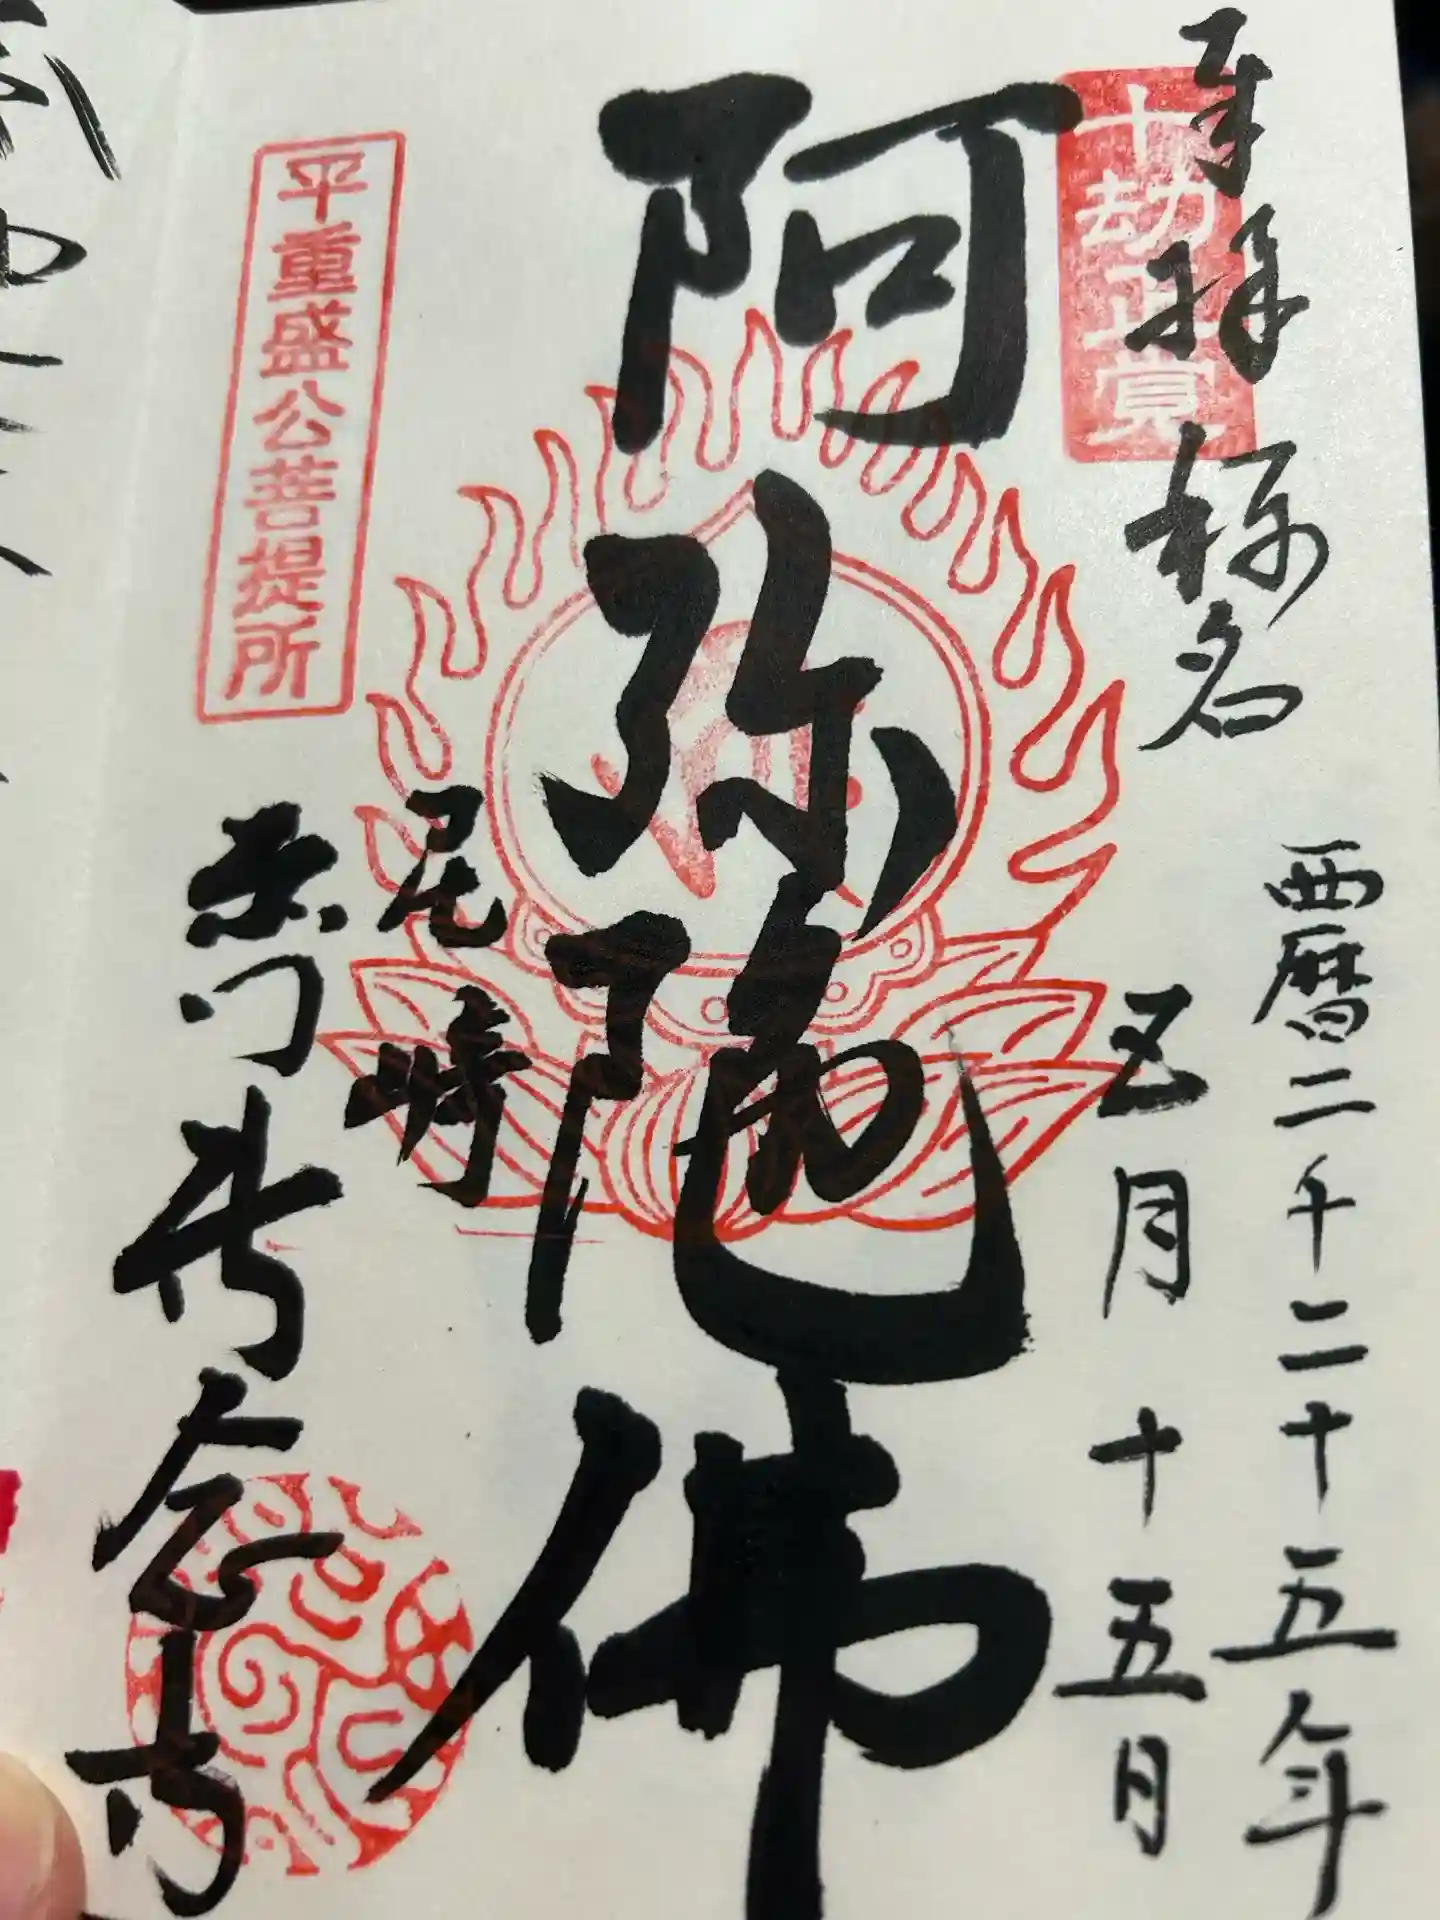 奉拝 称名
十劫正覚
西暦二千二十五年
五月十五日
阿弥陀佛
平重盛公菩提所
尾崎
赤門 念寺